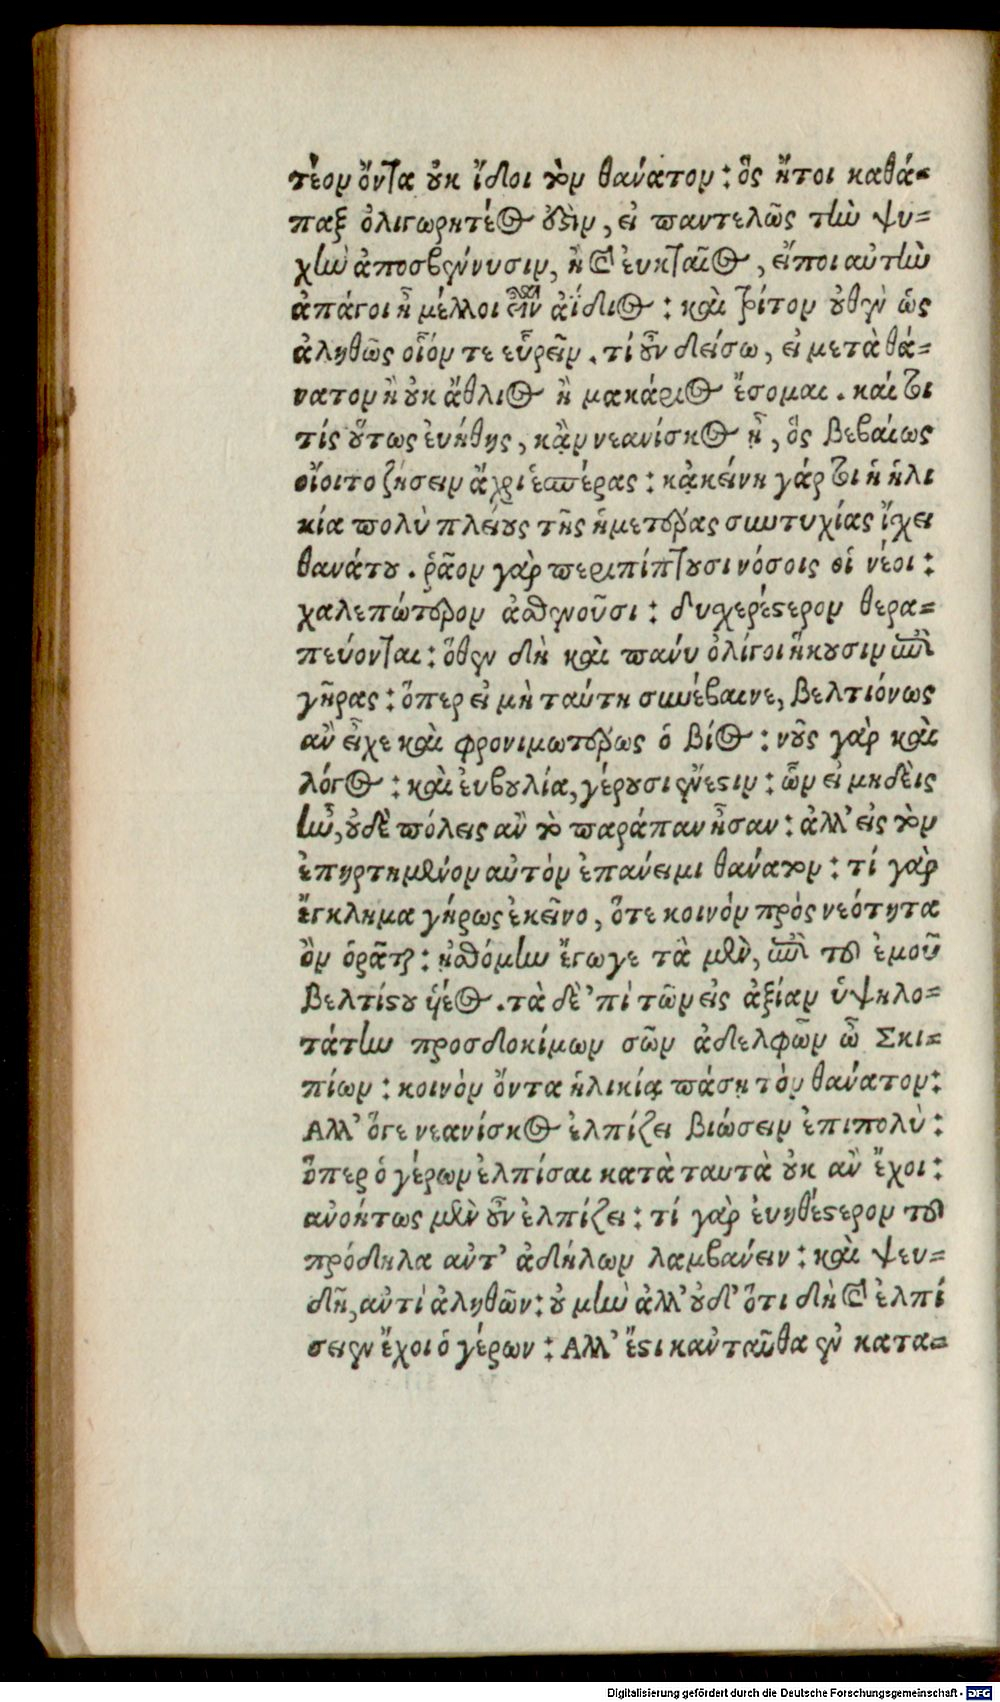 τέον ὄντα οὐκ ἴδοι τὸν θάνατον : ὃς ἤτοι καθά=
παξ ὀλιγωρητέος ἐστὶν, εἰ παντελῶς τὴν ψυ=
χὴν ἀποσβέννυσιν, ἢ καὶ ἐυκταῖος, εἴποι αὐτὴν
ἀπάγοι ᾗ μέλλοι εἶναι ἀΐδιος : καὶ τρίτον οὐθὲν ὡς
ἀληθῶς οἷόν τε εὑρεῖν . τί οὖν δείσω, εἰ μετὰ θά=
νατον ἢ οὐκ ἄθλιος ἢ μακάριος ἔσομαι . καίτοι
τίς οὕτως ἐυήθης, κᾂν νεανίσκος ᾖ, ὃς βεβαίως
οἴοιτο ζήσειν ἄχρι ἑσπέρας : κᾀκείνη γάρ τοι ἡ ἡλι
κία πολὺ πλείους τῆς ἡμετέρας συντυχίας ἴχει
θανάτου . ῥᾶον γὰρ περιπίπτουσι νόσοις οἱ νέοι :
χαλεπώτερον ἀσθενοῦσι : δυσχερέστερον θερα=
πεύονται : ὅθεν δὴ καὶ πάνυ ὀλίγοι ἥκουσιν ἐπὶ
γῆρας : ὅπερ εἰ μὴ ταύτη συνέβαινε, βελτιόνως
ἂν εἶχε καὶ φρονιμωτέρως ὁ βίος : νοῦς γὰρ καὶ
λόγος : καὶ ἐυβουλία, γέρουσι ἔνεστιν : ὧν εἰ μηδεὶς
ἦν, οὐδὲ πόλεις ἂν τὸ παράπαν ἦσαν : ἀλλ' εἰς τὸν
ἐπηρτημένον αὐτὸν ἐπάνειμι θάνατον : τί γὰρ
ἔγκλημα γήρως ἐκεῖνο, ὅτε κοινὸν πρὸς νεότητα
ὂν ὁρᾶται : ᾐσθόμην ἔγωγε τὰ μὲν, ἐπὶ τοῦ ἐμοῦ
βελτίστου υἱέος . τὰ δὲ 'πὶ τῶν εἰς ἀξίαν ὑψηλο=
τάτην προσδοκίμων σῶν ἀδελφῶν ὦ Σκι=
πίων : κοινὸν ὄντα ἡλικίᾳ πάσῃ τὸν θάνατον :
Ἀλλ' ὅγε νεανίσκος ἐλπίζει βιώσειν ἐπιπολὺ :
ὅπερ ὁ γέρων ἐλπίσαι κατὰ ταυτὰ οὐκ ἂν ἔχοι :
ἀνοήτως μὲν οὖν ἐλπίζει : τί γὰρ ἐυηθέστερον τοῦ
πρόδηλα ἀντ' ἀδήλων λαμβάνειν : καὶ ψευ=
δῆ, ἀντὶ ἀληθῶν : οὐ μὴν ἀλλ' οὐδ' ὅτι δὴ καὶ ἐλπί
σειεν ἔχοι ὁ γέρων : Ἀλλ' ἔστι κᾀνταῦθα ἐν κατα=
Digitalisierung gefördert durch die Deutsche Forschungsgemeinschaft - DFG